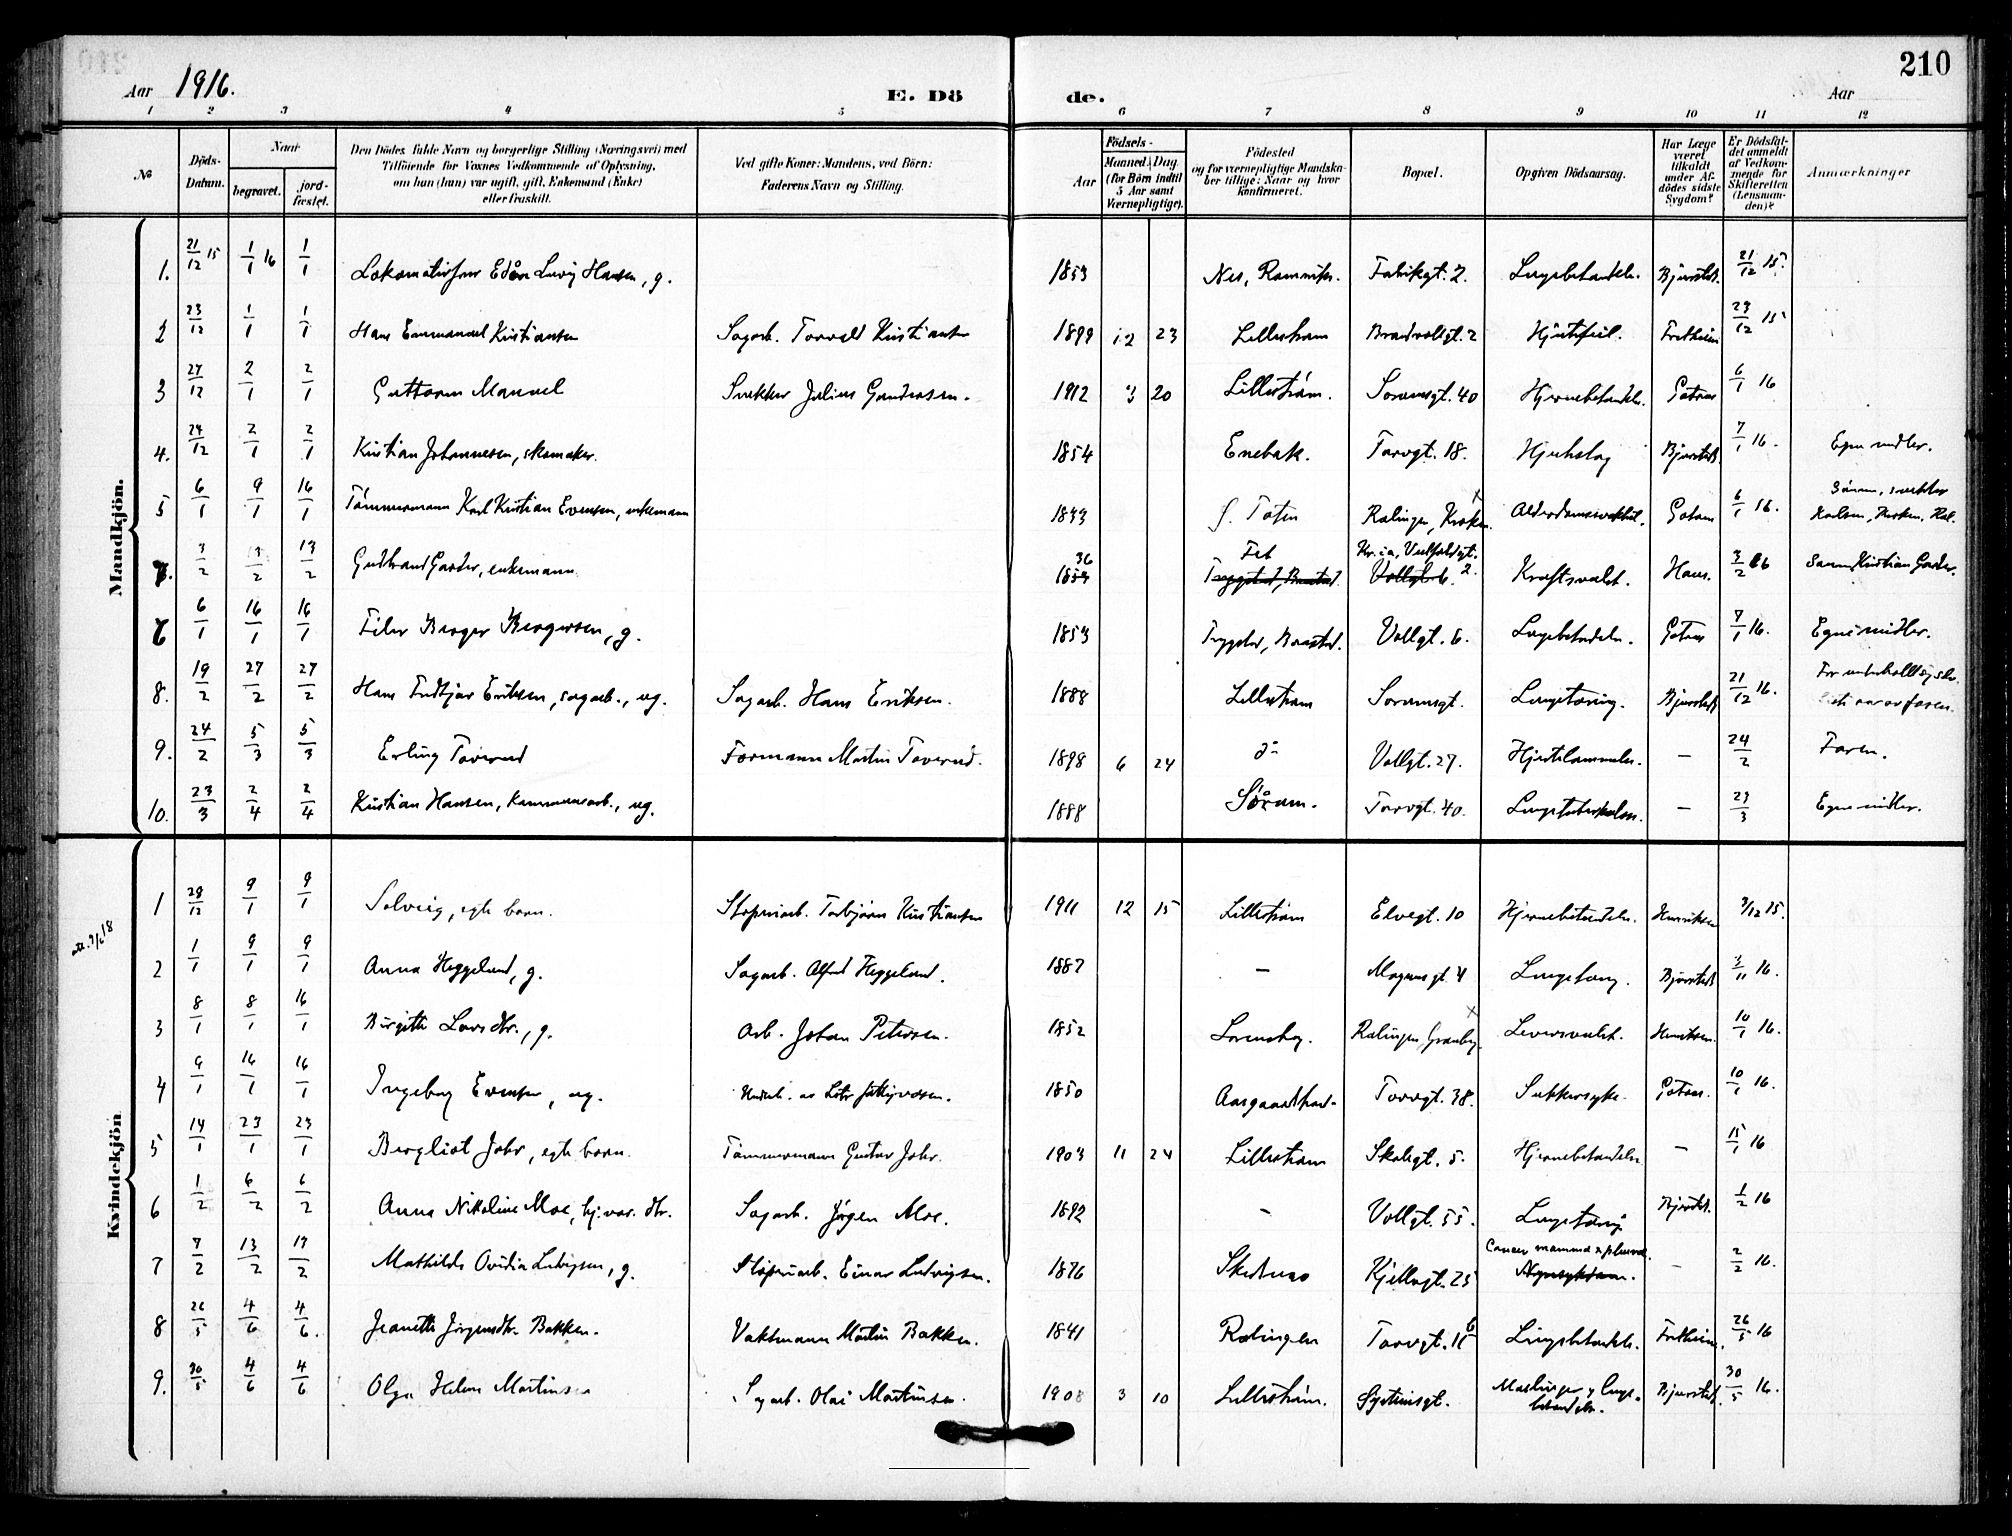 210
Aar 1916.
E. Dö de.
Aar
1 2 3 4 5 6 7 8 9 10 11 12
No
Döds-Datum.
Naar
begravet.
jord-fæstet.
Den Dödes fulde Navn og borgerlige Stilling (Næringsvei) med Tilföiende for Voxnes Vedkommende af Oplysning, om han (hun) var ugift, gift, Enkemand (Enke) eller fraskilt.
Ved gifte Koner: Mandens, ved Börn: Faderens Navn og Stilling.
Födsels-
Aar
Maaned.
Dag.
(for Börn indtil 5 Aar samt Værnepligtige).
Födested og for værnepligtige Mandskaber tillige: Naar og hvor konfirmeret.
Bopæl.
Opgiven Dödsaarsag.
Har Læge været tilkaldt under Afdödes sidste Sygdom?
Er Dödsfaldet anmeldt af Vedkommende for Skifteretten (Lensmanden)?
Anmærkninger
Mandkjön.
1. 21/12 15 1/1 16 1/1 Hansen, g. 1853 Nes, Fabrikgt. 2. 21/12 15.
2 23/12 1/1 1/1 Hans Emmanuel Kristiansen Sagarb. Torvald Kristiansen 1899 12 23 Lilleström 2 Hjertefeil. Fretheim 23/12 15
3 27/12 2/1 2/1 Guttorm Manuel Snekker Julius Gundersen. 1912 3 20 Lilleström. Sörumsgt. 40 Hjernebetændelse. 6/1 16
4. 24/12 2/1 2/1 Kristian Johannesen, skomaker. 1854 Enebak. Torvgt. 18. Hjerteslag 7/1 16. Egne midler.
5 6/1 9/1 16/1 Tömmermann Karl Kristian Evensen, enkemann 1833 Toten Rælingen, Alderdomssvakhet. 6/1 16. Sönn, snekker
7. 3/2 13/2 13/2 Gudbrand Garder, enkemann 1836 Fet Kr.ia, 2. Kraftsvakt. Hans. 3/2 16 Sönn Kristian Garder.
6 6/1 16/1 16/1 Bergersen, g. 1853 Trygstad, Båstad. Vollgt. 6. Lungebetændelse. 7/1 16. Egne midler.
8. 19/2 27/2 27/2 Hans Fridtjov Eriksen, sagarb., ug. Sagarb. Hans Eriksen. 1888 Lilleström Sörumsgt. Lungetæring. 21/12 16. av faren.
9. 24/2 5/3 5/3 Erling Töverud Formann Martin Töverud. 1898 6 24 do Vollgt. 27. Hjertelammelse. – 24/2 Faren.
10. 23/3 2/4 2/4 Kristian Hansen, ug. 1888 Söram. Torvgt. 40. Lungetuberkulose. – 23/3 Egne midler.
Kvindekjön
1 29/12 9/1 9/1 Solveig, egte barn. Stöperiarb. Torbjörn Kristiansen 1911 12 15 Lilleström Elvegt. 10 Hjernebetændelse. Henriksen 3/12 15.
2 1/1 9/1 9/1 Anna Heggelund, g. Sagarb. Alfred Heggelund. 1887 – Magnusgt. 4 Lungetæring. 16.
3 8/1 8/1 16/1 Birgitte Larsdtr., g. Arb. Johan Petersen. 1852 Lörenskog. Rælingen, Granberg Leversvulst. Henriksen. 10/1 16.
4 9/1 16/1 16/1 Ingeborg Evensen, ug. 1850 Torvgt. 38. Sukkersyke. 10/1 16.
5 14/1 23/1 23/1 Bergliot Johr, egte barn. Tömmermann Gustav Johr. 1903 11 24 Lilleström Skolegt. 5. Hjernebetændelse – 15/1 16
6 1/2 6/2 6/2 Anna Nikoline Moe, hj.vær. dtr. Sagarb. Jörgen Moe. 1892 – Vollgt. 55. Lungetæring 1/2 16
7 7/2 13/2 13/2 Mathilde Ovidia Ludvigsen, g. Stöperiarb. Einar Ludvigsen. 1876 Skedsmo Kjellergt. 25 Cancer mammæ & pleuræ. – 2/2 16.
8 26/5 4/6 4/6. Jeanette Jörgensdtr. Bakken. Vaktmann Martin Bakken. 1841 Rælingen Torvgt. 16 Lungebetændelse. Fretheim. 26/5 16
9. 30/5 4/6 4/6 Olga Helene Martinsen Sagarb. Olai Martinsen. 1908 3 10 Lilleström. Meslinger og lungebetændelse. 30/5 16.